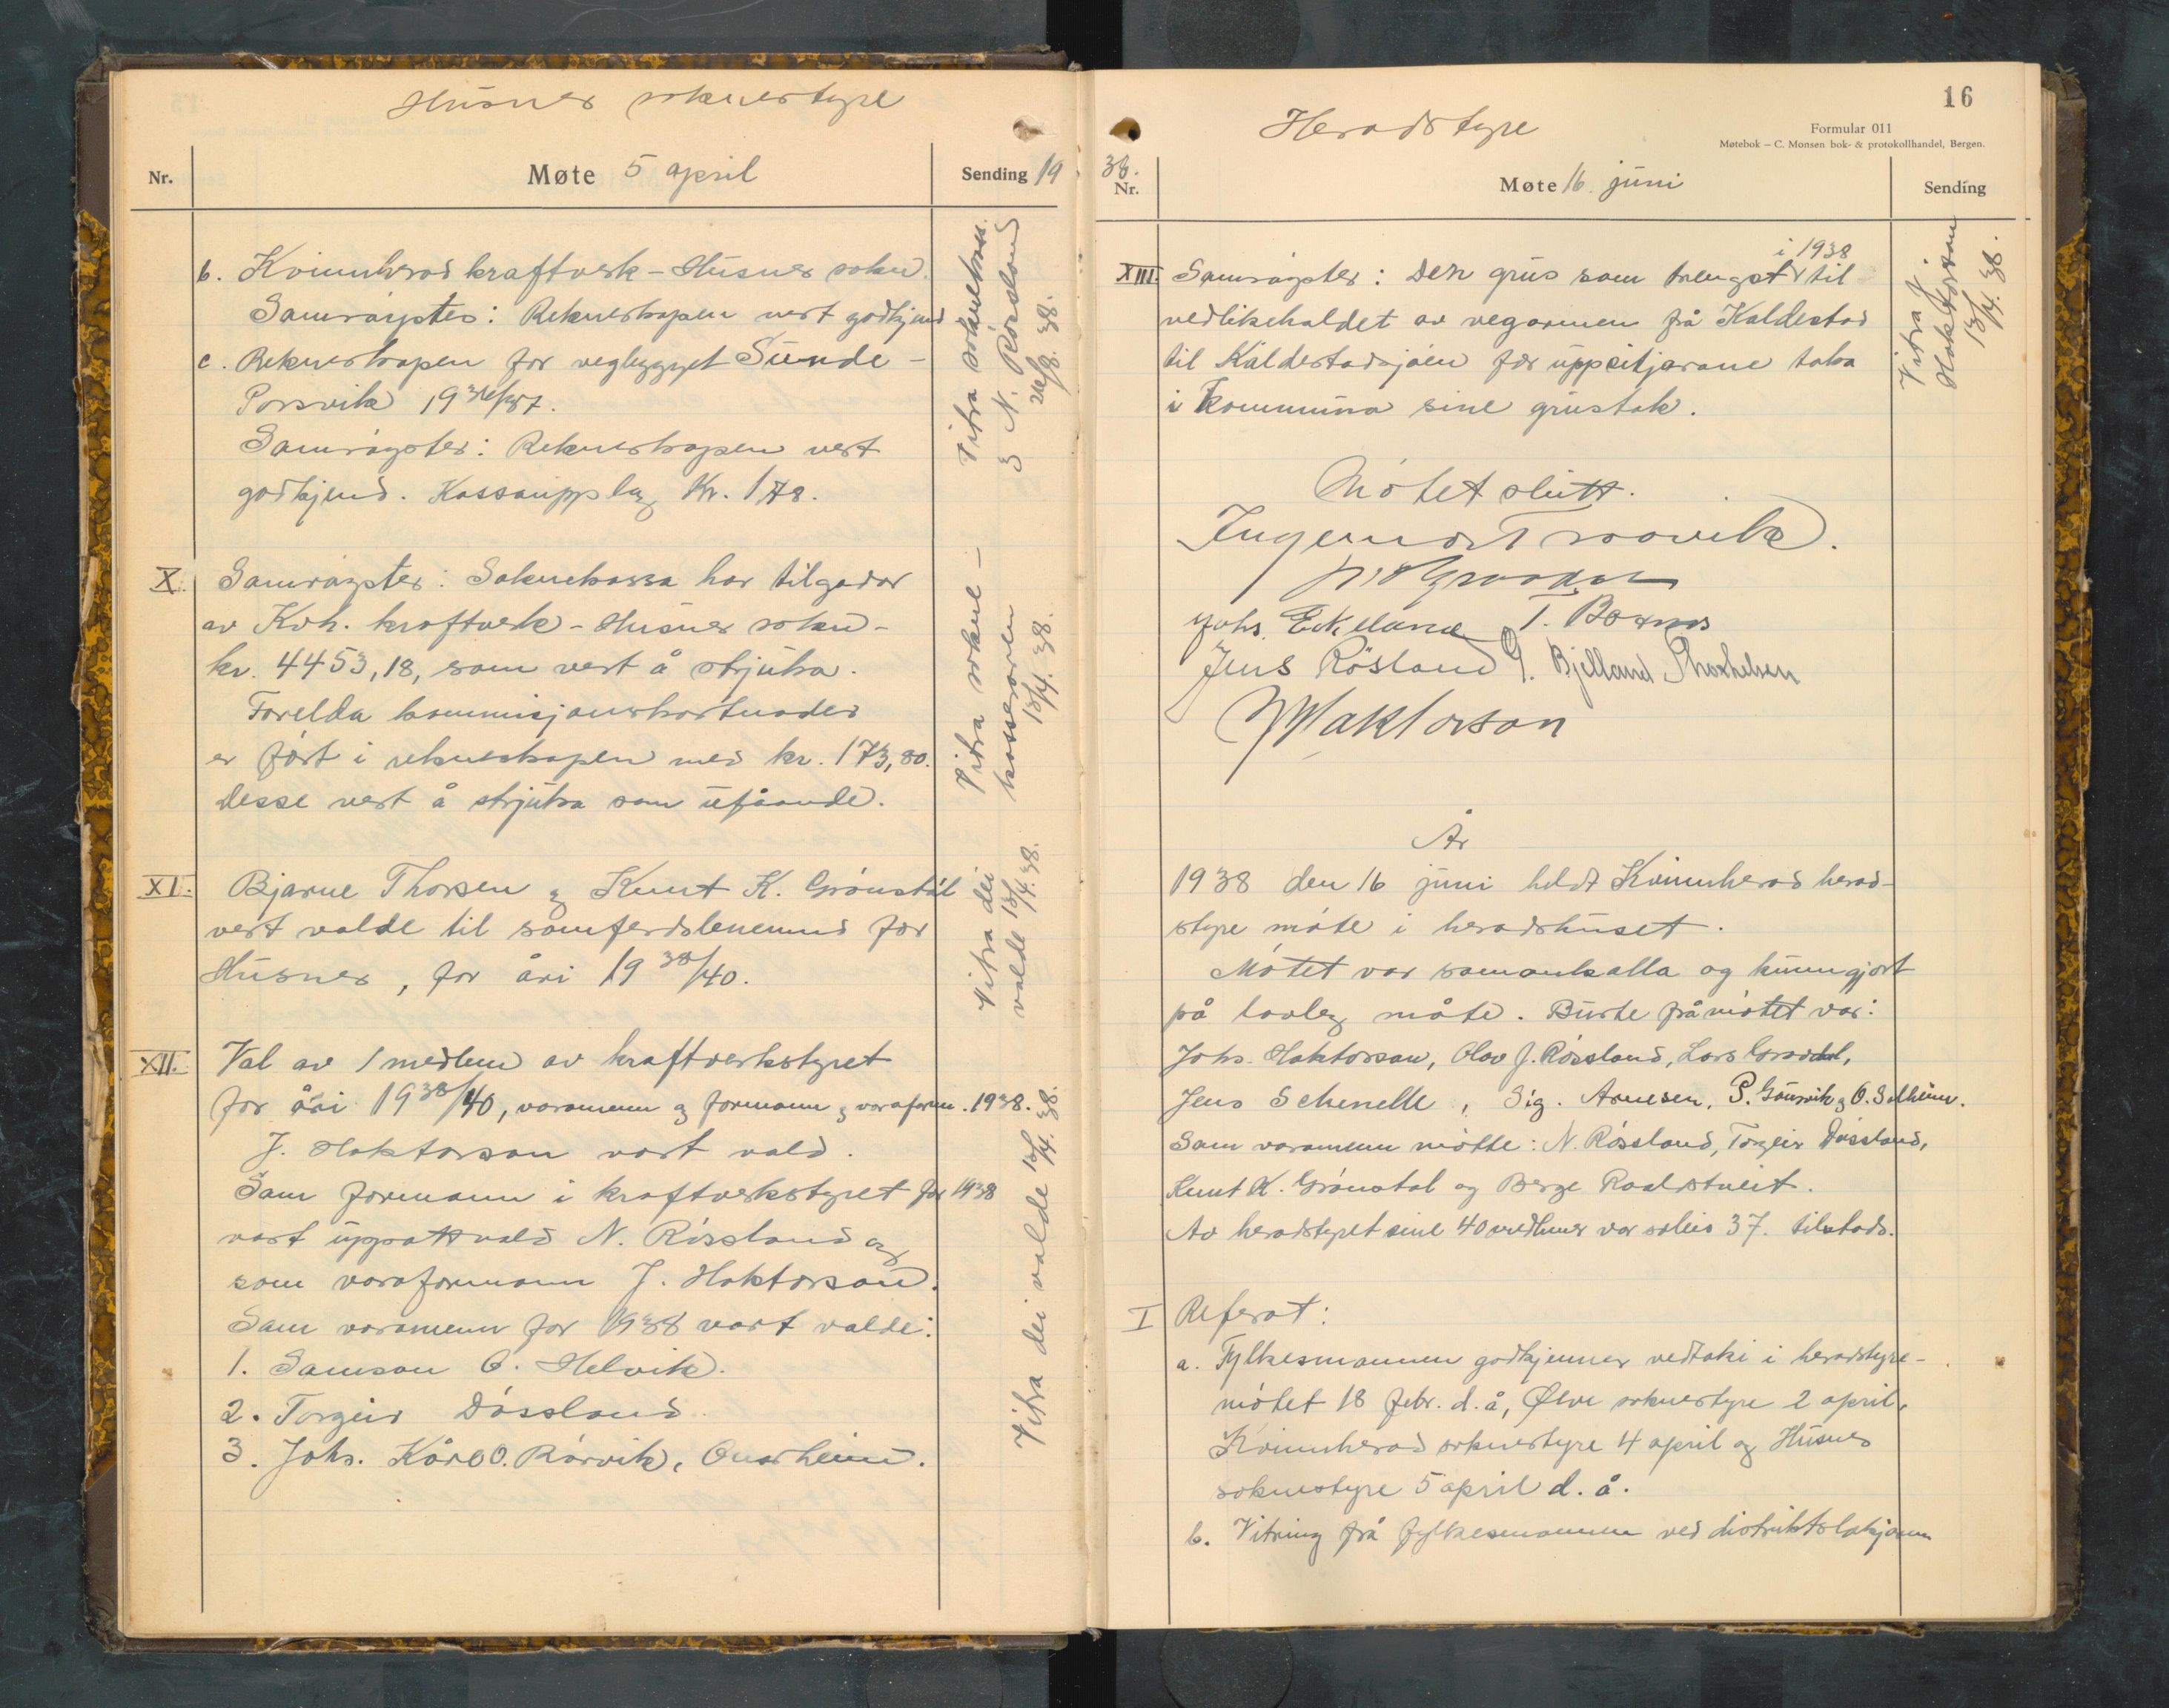 Husnes soknestyre
Nr.
Møte 5 april
Sending 19
b. Kvinnherad kraftverk - Husnes sokn.
Samrøystes: Rekneskapen vert godkjend
c. Rekneskapen for vegbygget Sunde -
Porsvik 1936/37.
Samrøystes: Rekneskapen vert
godkjend. Kassaupplag Kr. 178.
Vitra soknekass.
3 N. Røssland
26/8. 38.
X. Samrøystes: Soknekassa har tilgodar
av Kvh. kraftverk - Husnes sokn -
kr. 4453,18, som vert å strjuka.
Forelda kommisjonskostnader
er ført i rekneskapen med kr. 173,80.
Desse vert å strjuka som uføande.
Vitra sokne -
kasseraren
13/4. 38.
XI. Bjarne Thorsen og Knut K. Grønstøl
vert valde til samferdslenemnd for
Husnes, for åri 1938/40.
Vitra dei
valde 13/4. 38.
XII. Val av 1 medlem av kraftverkstyret
for åri 1938/40, varamenn og formann og varaform. 1938.
J. Haktorson vart vald.
Som formann i kraftverkstyret for 1938
vart uppattvald N. Røssland og
som varaformann J. Haktorson.
Som varamenn for 1938 vart valde:
1. Samson O. Helvik.
2. Torgeir Døssland.
3. Johs. Kåre O. Rørvik, Onarheim.
Vitra dei valde 13/4. 38.
16
Heradstyre
Formular 011
Møtebok – C. Monsen bok- & protokollhandel, Bergen.
38.
Nr.
Møte 16. juni
Sending
XIII. Samrøystes: Den grus som trengst i 1938 til
vedlikehaldet av vegarmen frå Kaldestad
til Kaldestadsjøen fær uppsitjarane taka
i kommuna sine grustak.
Vitra J.
Haktorson
13/4. 38.
Møtet slutt.
Ingemor Traavik.
Johs. Eikeland T. Børnes
Jens Røsland G. Bjelland Thorkelsen
J Haktorson
År
1938 den 16 juni heldt Kvinnherad herad-
styre møte i heradshuset.
Møtet var samankalla og kunngjort
på lovleg måte. Burte frå møtet var:
Johs. Haktorson, Olav J. Røssland, Lars Goradal,
Jens Schenelle, Sig. Arnesen, P. Gausvik og O. Solheim.
Som varamenn møtte: N. Røssland, Torgeir Døssland,
Knut K. Grønstøl og Berge Raaldstveit.
Av heradstyret sine 40 medlemer var soleis 37. tilstads.
I Referat:
a. Fylkesmannen godkjenner vedtaki i heradstyre-
møtet 18 febr. d.å, Ølve soknestyre 2 april,
Kvinnherad soknestyre 4 april og Husnes
soknestyre 5 april d. å.
b. Vitring frå fylkesmannen ved distriktslækjaren